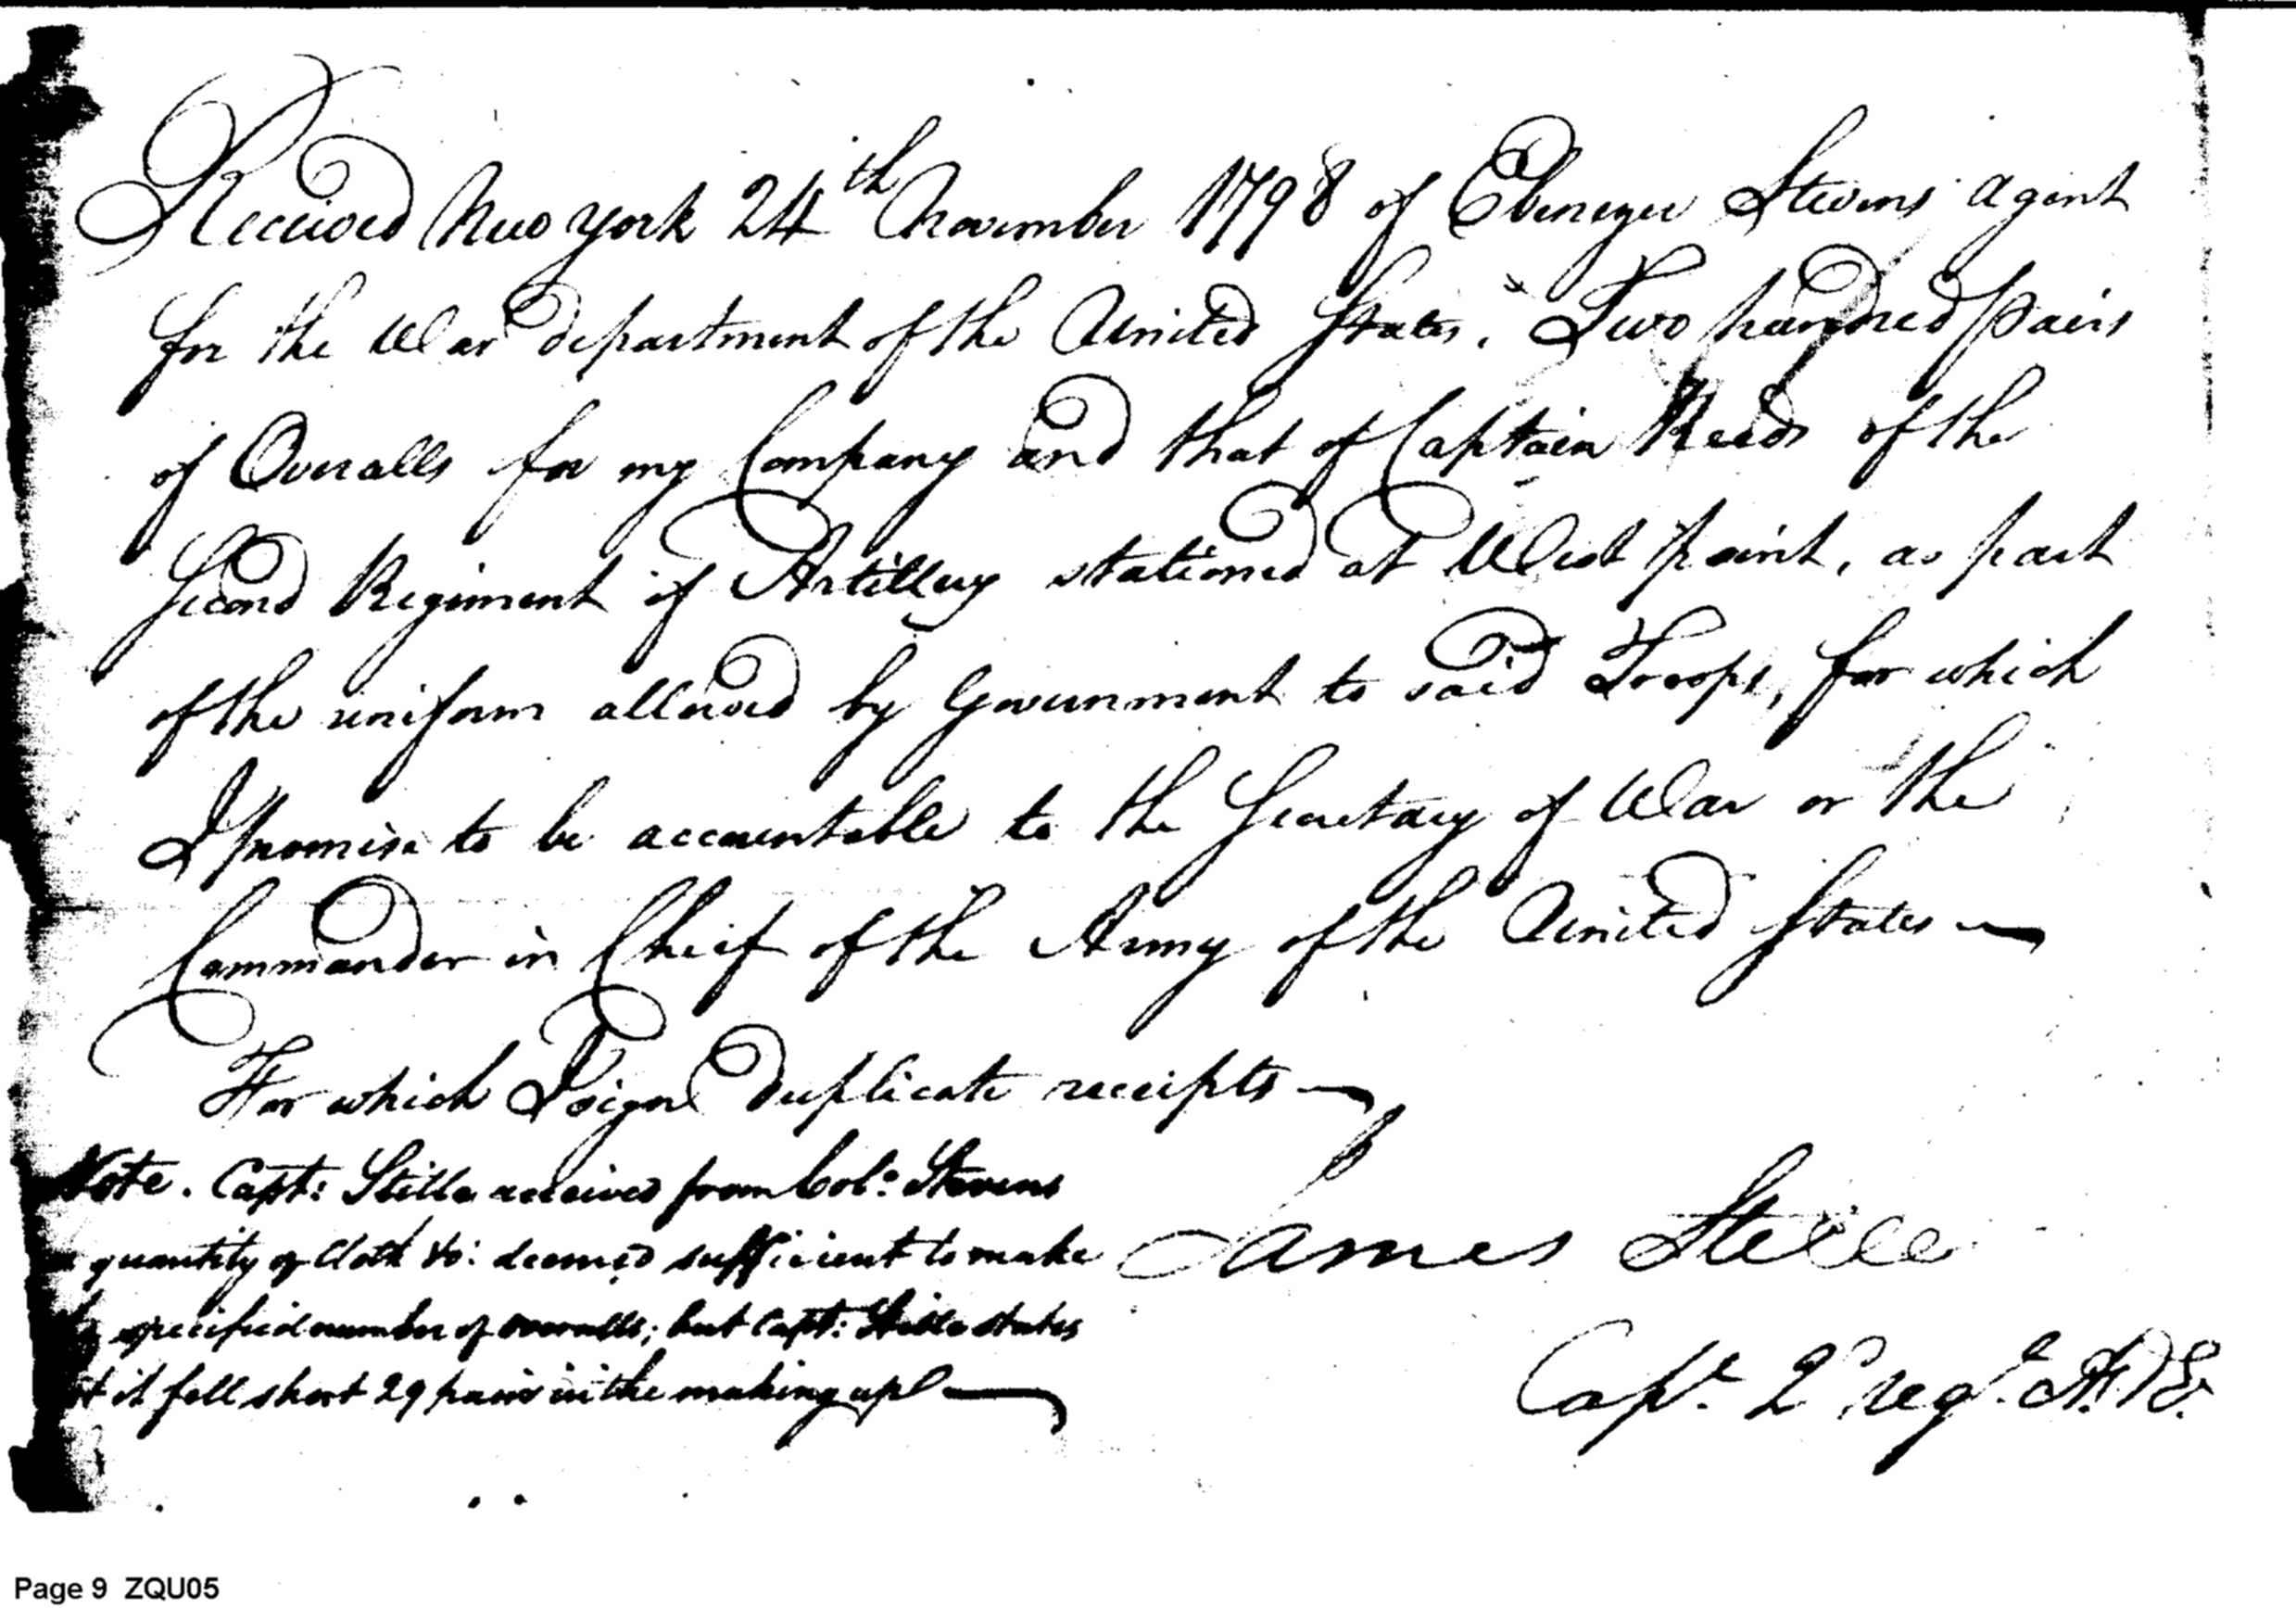 Received New York 24th November 1798 of Ebenezer Stevens agent
for the War department of the United States. Two hundred pairs
of Overalls for my Company and that of Captain Reads of the
Second Regiment of Artillery stationed at West point, as part
of the uniform allowed by Government to said Troops, for which
I promise to be accountable to the Secretary of War or the
Commander in Chief of the Army of the United States —
For which I sign duplicate receipts —
Note. Capt: Stille received from Colo: Stevens
quantity of Cloth &c: deemed sufficient to make
specified number of overalls; but Capt: Stille states
it fell short 29 pairs in the making up —
James Stille
Capt. 2d regt. A. & E.
Page 9 ZQU05